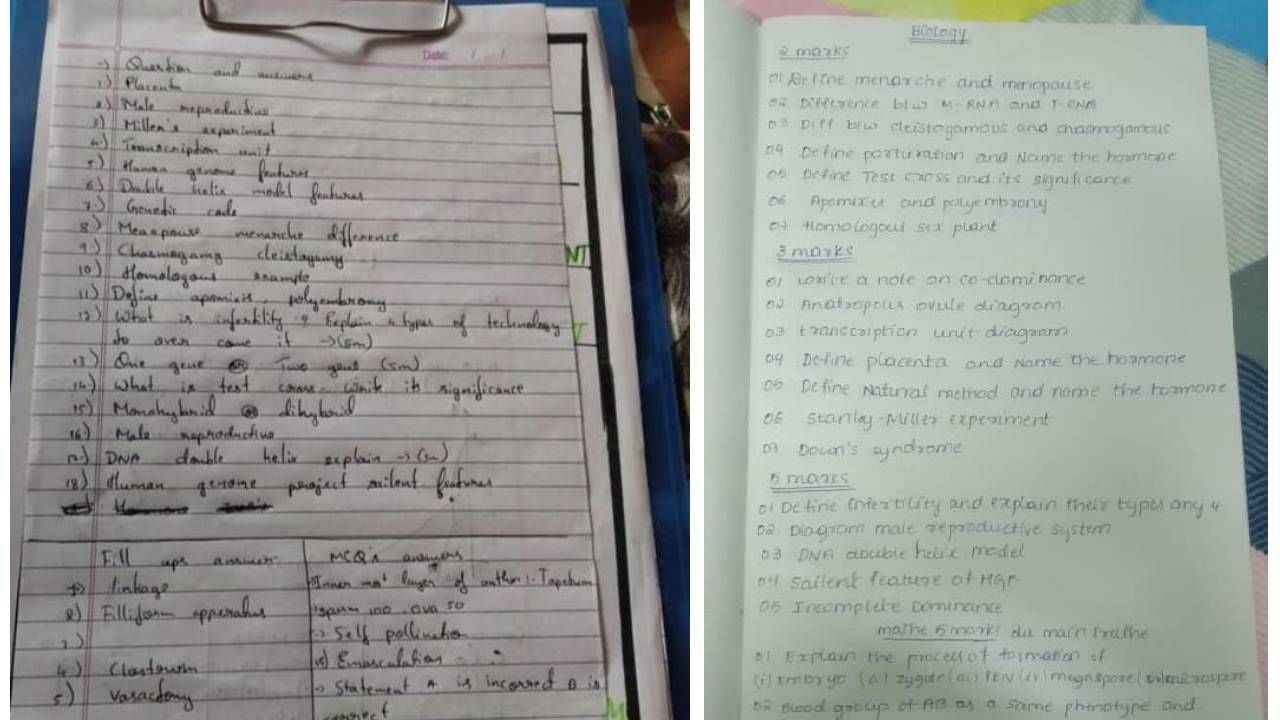 Date: / /
Question and answers
1) Placenta
2) Male reproductive
3) Miller's experiment
4) Transcription unit
5) Human genome features
6) Double helix model features
7) Genetic code
8) menarche difference
9) Chasmogamy cleistogamy
10) Homologous example
11) Define apomixis, polyembromy
12) What is infertility ? Explain 4 types of technology
to over come it → (5m)
13) One gene or Two gene (5m)
14) What is test cross write its significance
15) Monohybrid or dihybrid
16) Male reproductive
17) DNA double helix explain → (5m)
18) Human genome project silent features
Fill ups answer:
MCQ's answers
1) linkage
Inner most layer of anther :- Tapetum
2) Filliform apperatus
sperm 100 ova 50
3)
→ Self pollination
4) Clostourm
Emasculation
5) Vasactomy
→ Statement A is incorrect B is
correct
NT
Biology
2 marks
01 Define menarche and menopause
02 Difference b/w M-RNA and T-RNA
03 Diff b/w cleistogamous and chasmogamous
04 Define parturation and Name the hormone
05 Define Test cross and its significance
06 Apomixis and polyembrony
07 Homologous sex plant
3 marks
01 write a note on co-dominance
02 Anatropous ovule diagram
03 transcription unit diagram
04 Define placenta and Name the hormone
05 Define Natural method and name the hormone
06 Stanley-Miller experiment
07 Down's syndrome
5 marks
01 Define Infertility and explain their types any 4
02 Diagram male reproductive system
03 DNA double helix model
04 Sailent feature of HGP
05 Incomplete Dominance
mathe 5 marks du main
01 Explain the process of formation of
(i) Embryo (ii) zygote (iii) PEN (iv) megaspore
02 Blood group of AB as a same phenotype and